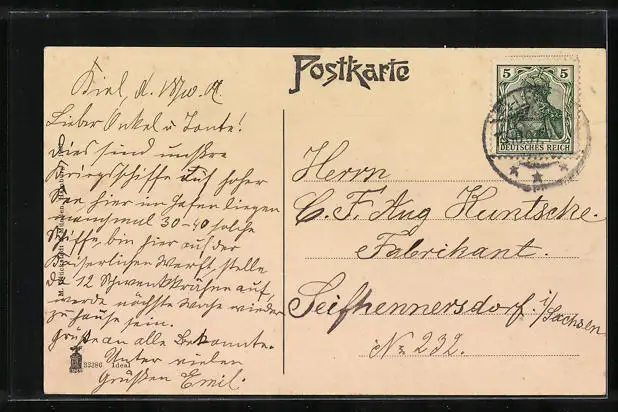 Postkarte
5 5
DEUTSCHES REICH
Kiel, d.
Lieber Onkel u Tante!
Dies sind unsre
Kriegsschiffe auf hoher
See hier im Hafen liegen
manchmal 30-40 solche
Schiffe, bin hier auf der
Kaiserlichen Werft, stelle
da 12 auf,
werde nächste Woche wieder
zu Hause sein.
Grüße an alle Bekannte.
Unter vielen
Grüßen Emil.
Herrn
C. F. Aug Kuntsche.
Fabrikant.
Seifhennersdorf. i/Sachsen
No 232.
33286 Ideal